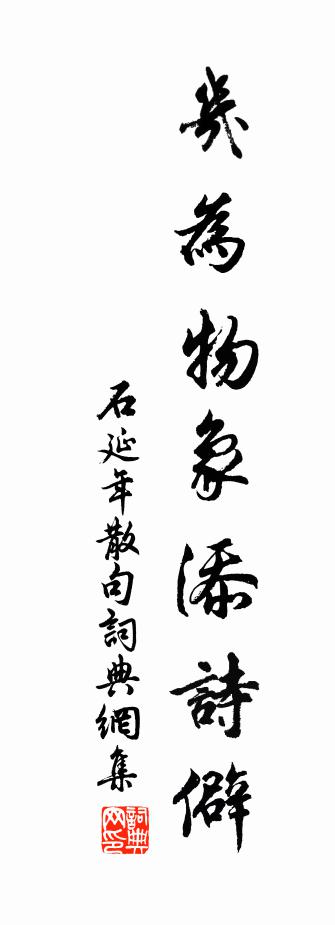 幾為物象添詩僻
石延年散句詞典網集
詞典網印